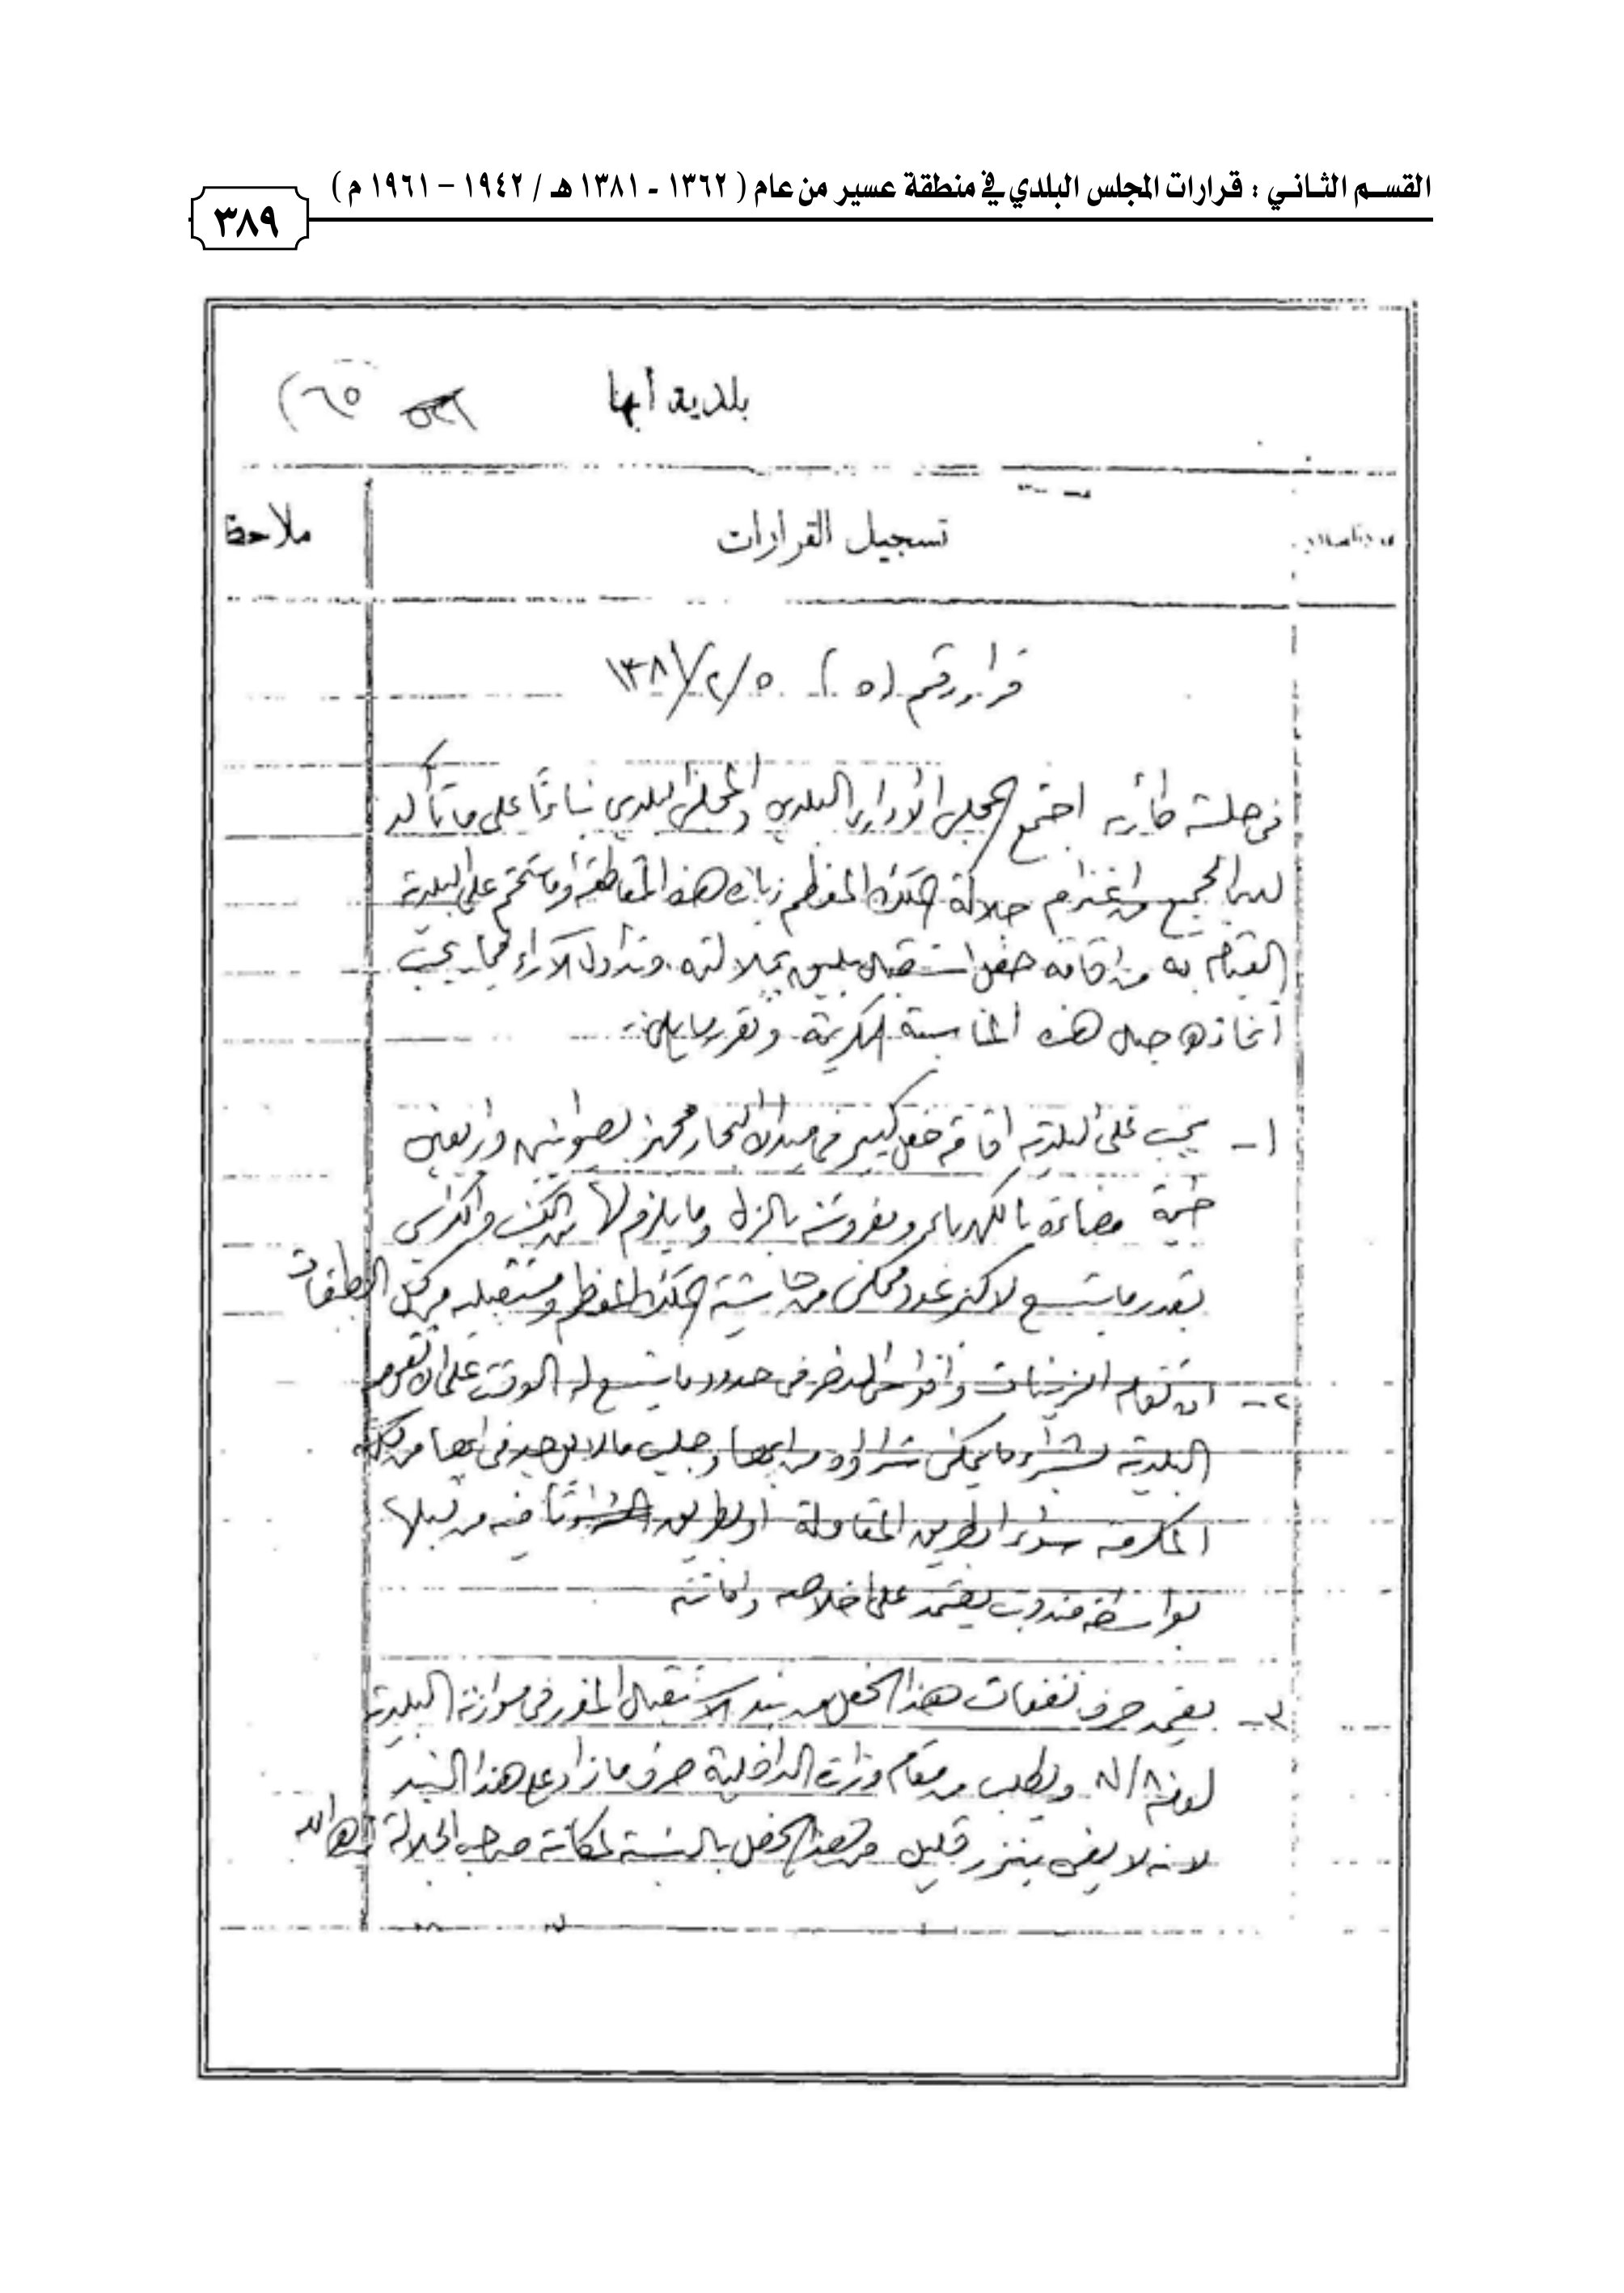 القسم الثاني : قرارات المجلس البلدي في منطقة عسير من عام ( ١٣٦٢ - ١٣٨١ هـ / ١٩٤٢ – ١٩٦١ م )
٣٨٩
بلدية أبها
(٦٥
تسجيل القرارات
ملاحظا
قرار رقم (٥) ٥/٢/١٣٨١
في جلسة طارئه اجتمع المجلس الأداري البلدي والمجلس البلدي بناءًا على ما تأكد
لدى الجميع من اعتزام جلالة الملك المعظم زيارة هذه المقاطعة وما يتحتم على البلدية
القيام به من اقامة حفل استقبال يليق بجلالته وتداول الآراء فيما يجب
أتخاذه حيال هذه المناسبة الكريمة وتقرر ما يلي :
١ - يجب على البلدية اقامة حفل كبير في ميدان البحار مجهز بصواوين واربعين
خيمة مضاءة بالكهرباء ومفروشة بالزل وما يلزم لها من الكنب والكراسي
بقدر ما يتسع لاكبر عدد ممكن من حاشية الملك المعظم ومستقبليه من كل الطبقات
٢ - ان تقام الزينات واقواس النصر في حدود ما يتسع له الوقت على ان تقوم
البلدية بشراء ما يمكن شراؤه من ابها وجلب مالا يوجد في ابها من مكة
المكرمة سواء بطريق المقاولة او بطريق فيه من قبلها
بواسطة مندوب يعتمد على اخلاصه وامانته
٣ - يعتمد صرف نفقات هذا الحفل من بند الاستقبال المقرر في موازنة البلدية
لسنة ٨١/٨٠ ويطلب من مقام وزارة الداخلية صرف ما زاد على هذا البند
لانه لا يفي بنزر قليل من هذا الحفل بالنسبة لمكانة صاحب الجلالة الله